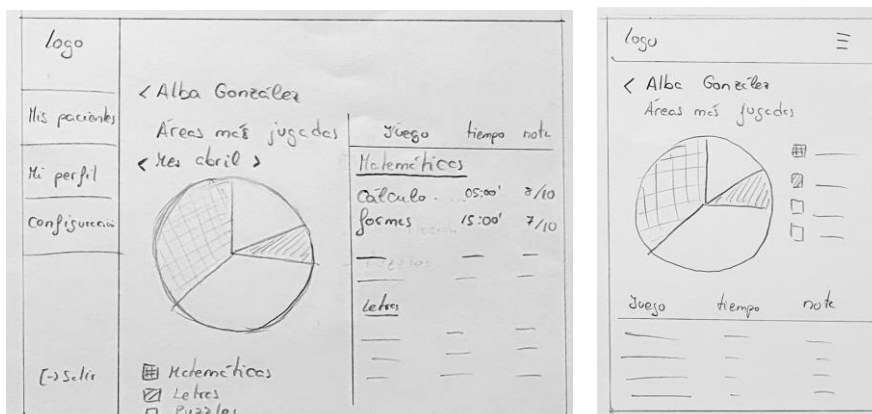 logo
Mis pacientes
Mi perfil
Configuración
[-> Salir
< Alba González
Áreas más jugadas
< Mes abril >
Matemáticas
Letras
Puzzles
Juego tiempo nota
Matemáticas
Cálculo . . . 05:00'
formas 15:00' 7/10
Letras
logo
< Alba González
Áreas más jugadas
Juego tiempo nota